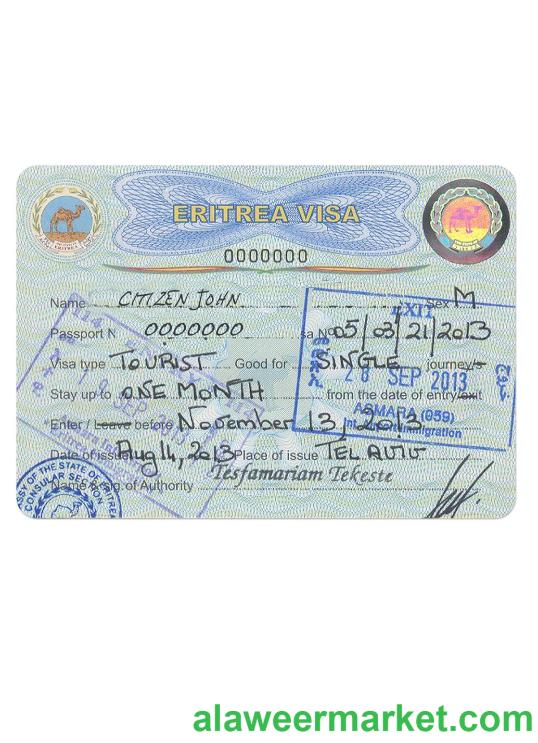 ERITREA VISA
0000000
Name CITIZEN JOHN Sex M
Passport N 0000000 sa No 05/03/21/2013
Visa type TOURIST Good for SINGLE journey/s
Stay up to ONE MONTH from the date of entry/exit
Enter / Leave before November 13, 2013
Date of iss Aug 14, 2013 Place of issue TEL AVIV
Tesfamariam Tekeste
Name & sig. of Authority
EXIT
28 SEP 2013
ASMARA (059)
Int. Immigration
SEP 2013
SY OF THE STATE OF ERITREA
CONSULAR SECTION
ERITREA
alaweermarket.com